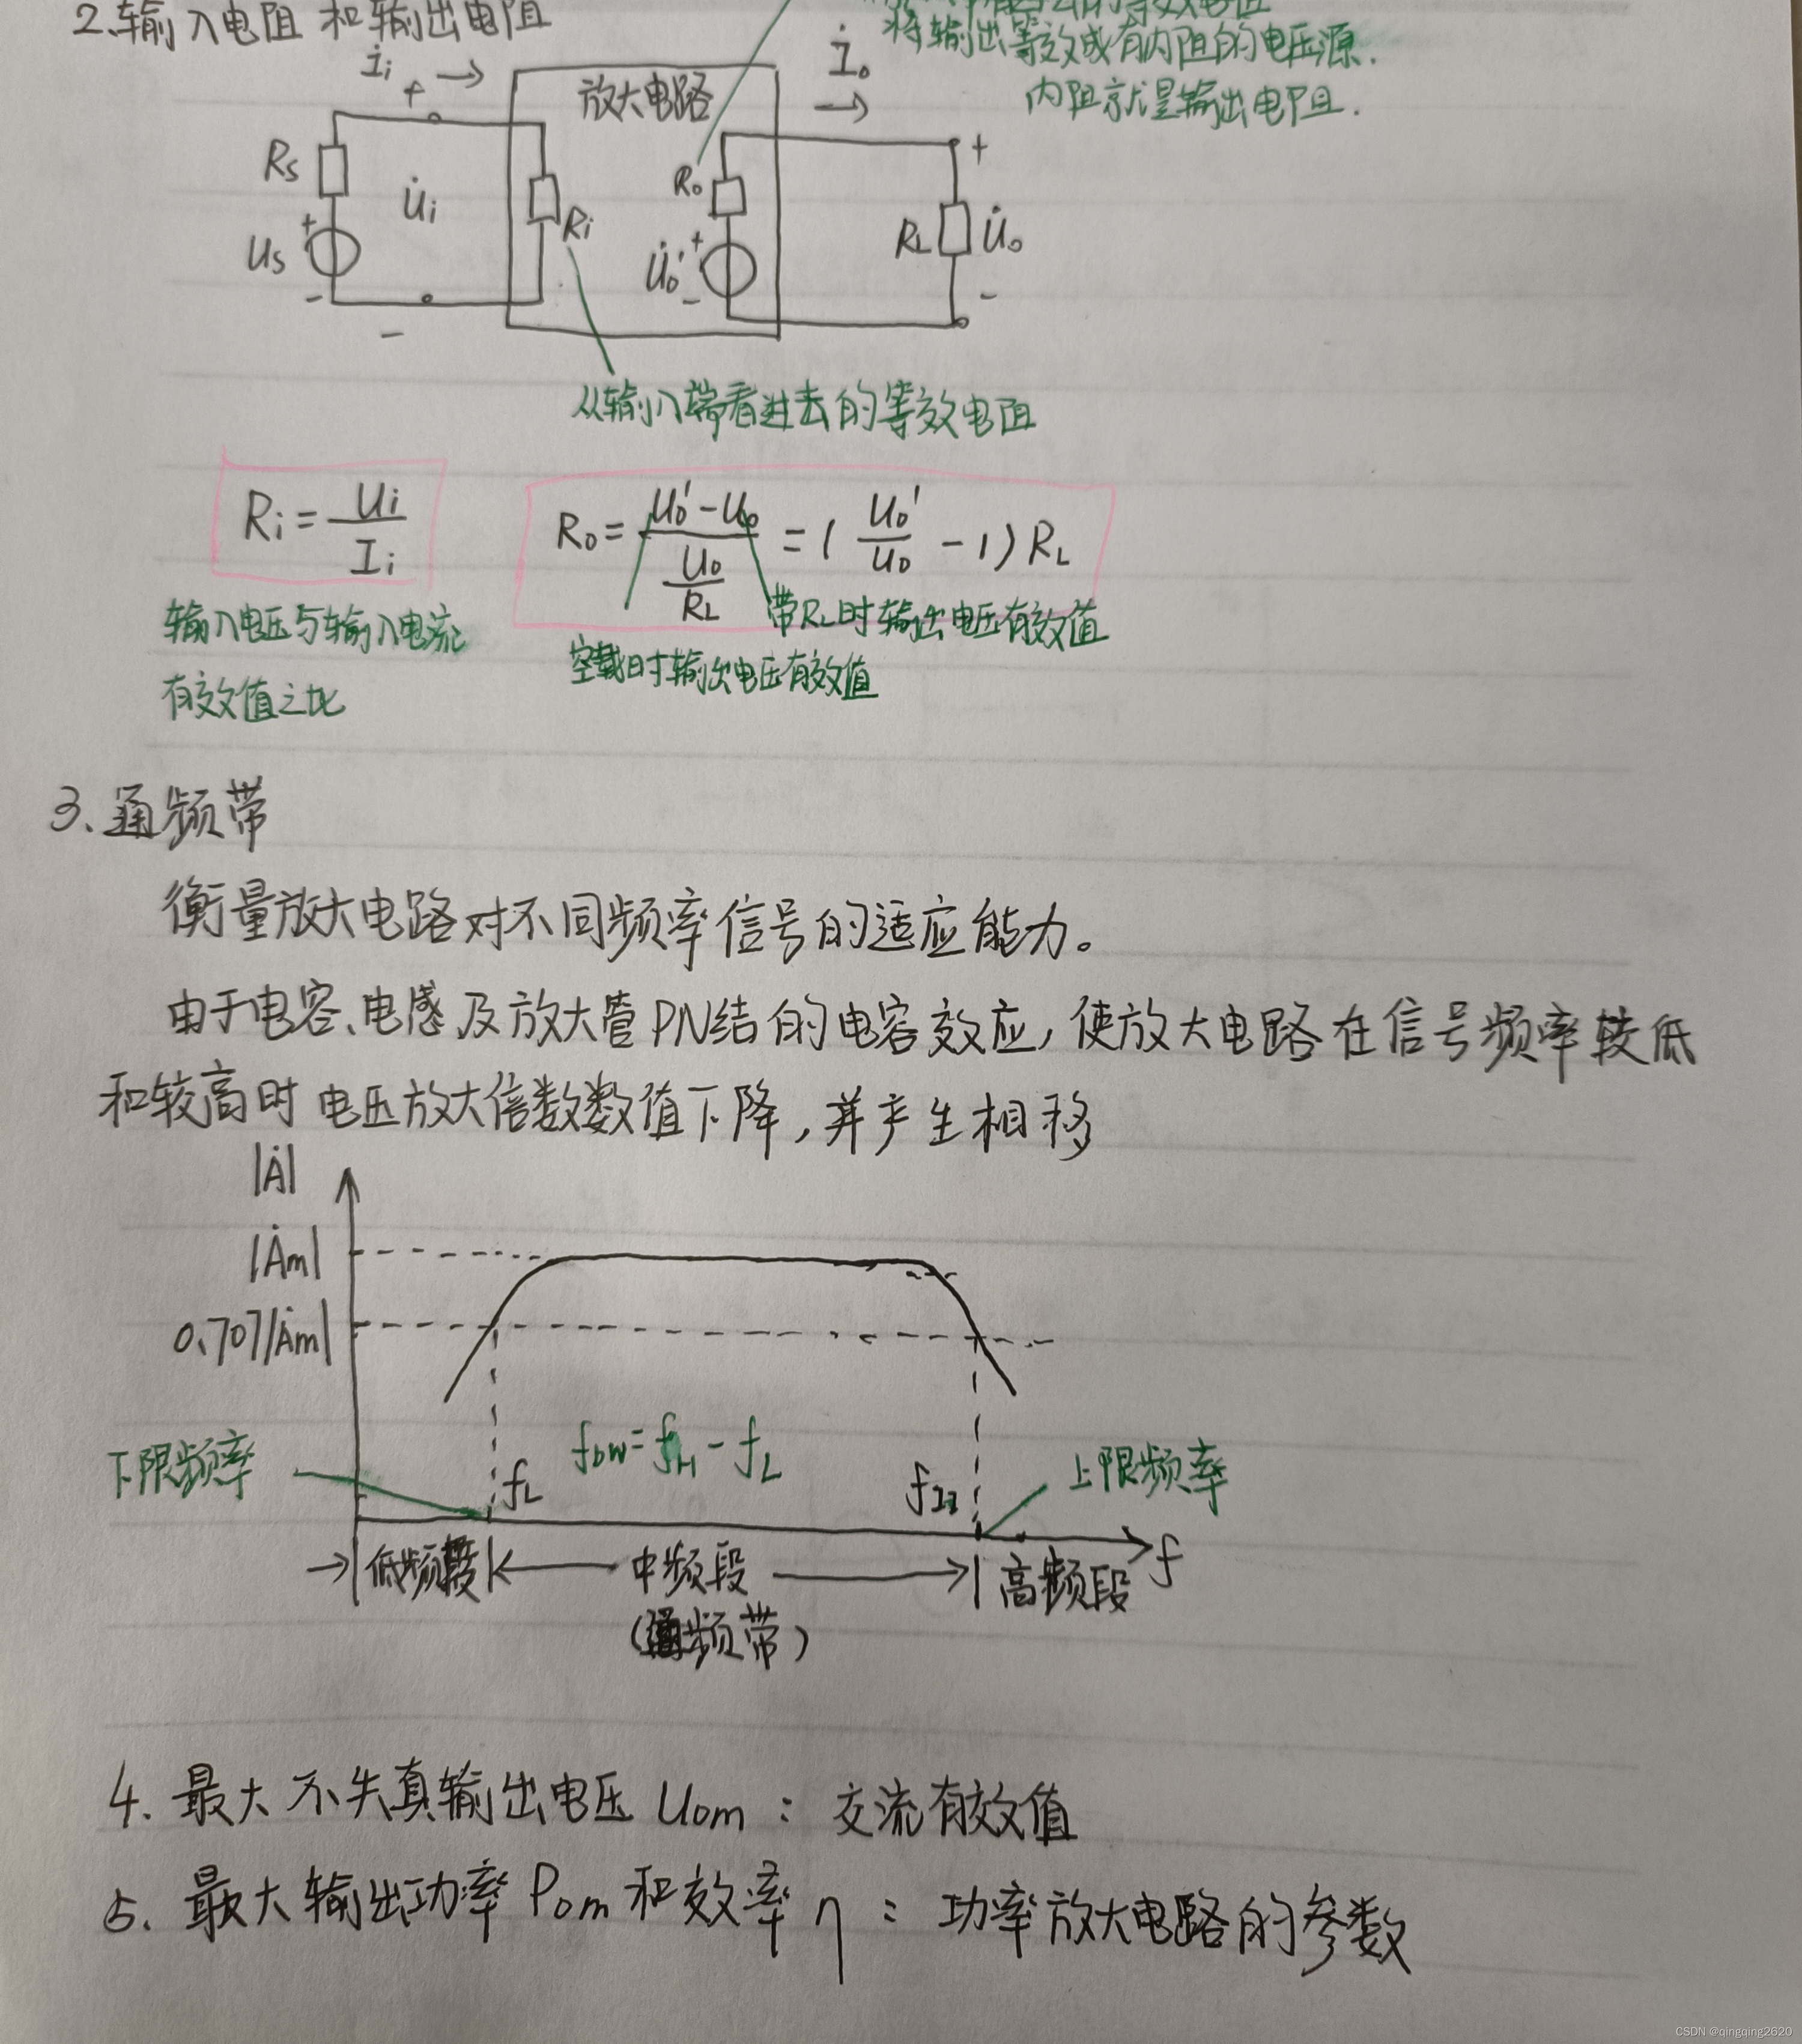 2、输入电阻和输出电阻
的等效电阻
将输出等效成有内阻的电压源.
内阻就是输出电阻.
İi
+ →
放大电路
İo
→
Rs
U̇i
Ri
Ro
+
RL
U̇o
+
Us
-
-
U̇o'
+
-
-
从输入端看进去的等效电阻
Ri = Ui / Ii
Ro = (Uo' - Uo) / (Uo / RL) = ( Uo' / Uo - 1 ) RL
输入电压与输入电流
有效值之比
带RL时输出电压有效值
空载时输出电压有效值
3、通频带
衡量放大电路对不同频率信号的适应能力。
由于电容、电感及放大管PN结的电容效应,使放大电路在信号频率较低
和较高时电压放大倍数数值下降,并产生相移
|Ȧ|
|Ȧm|
0.707|Ȧm|
下限频率
fL
fbw = fH - fL
fH
上限频率
f
低频段
中频段
高频段
(通频带)
4. 最大不失真输出电压 Uom : 交流有效值
5. 最大输出功率 Pom 和效率 η : 功率放大电路的参数
CSDN @qingqing2620